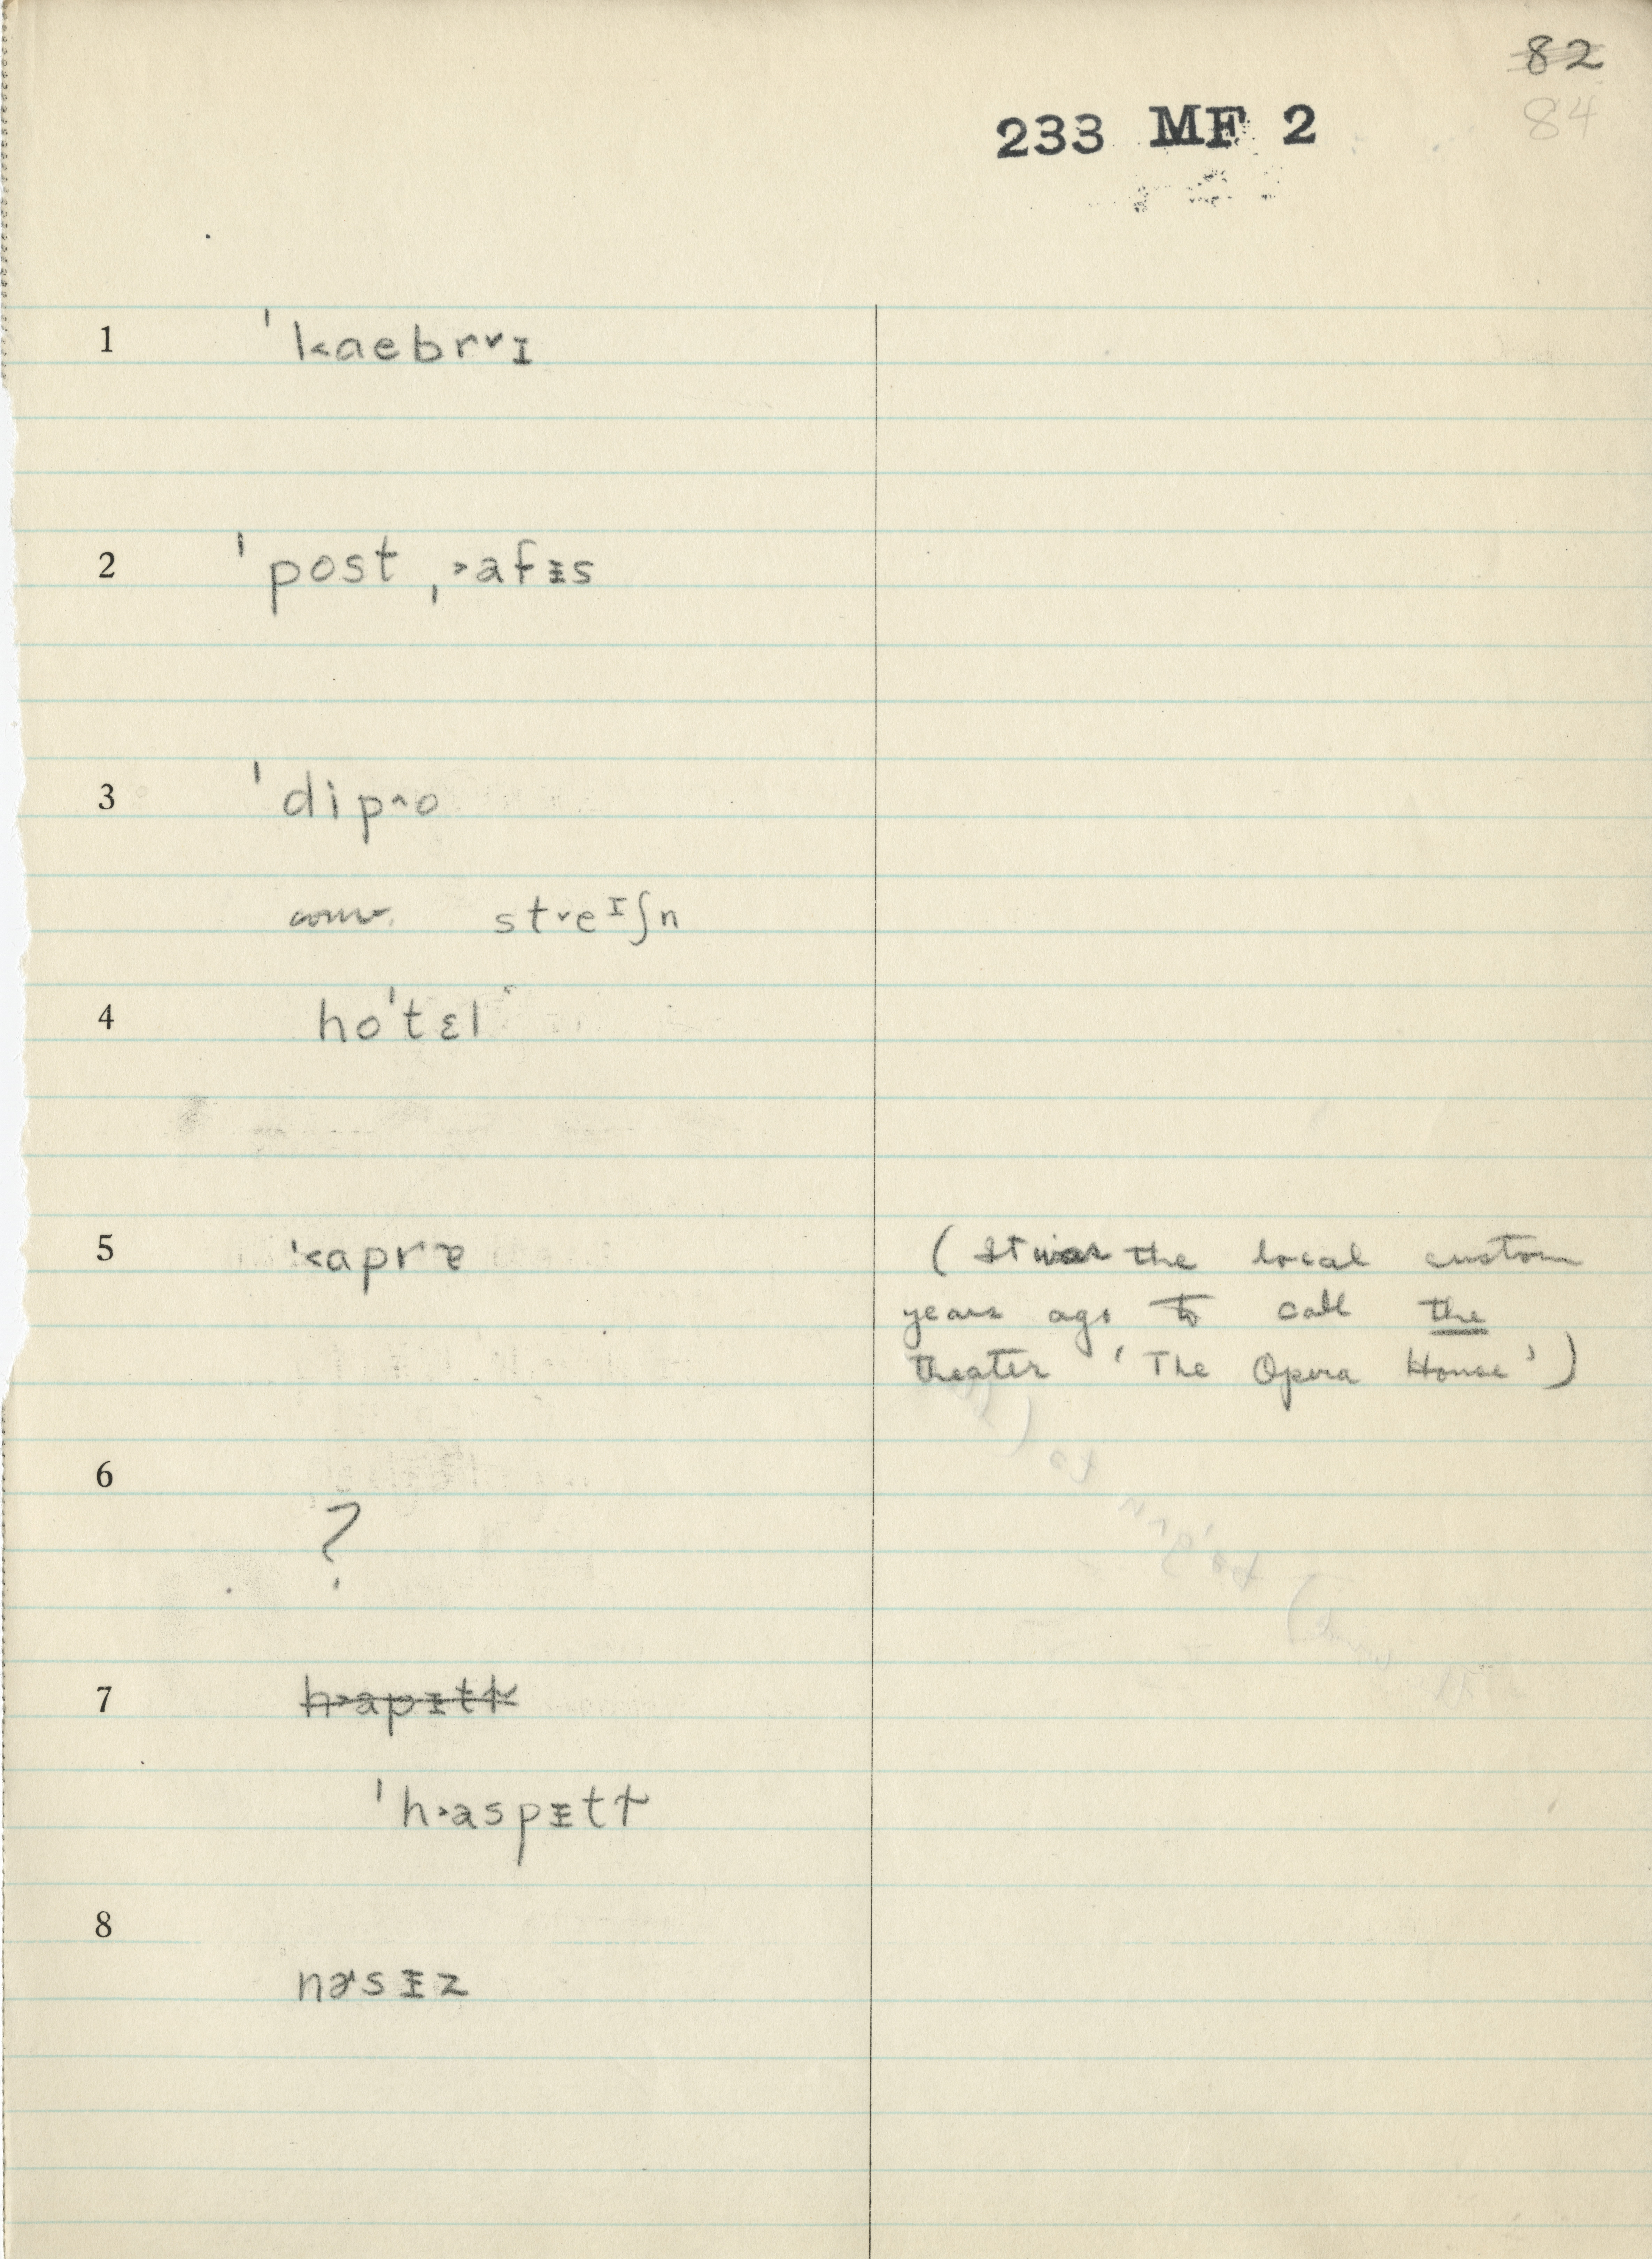 82
84
233 MF 2
1 ˈkaebr˅ɪ
2 ˈpost ˌ˃afɪ̵s
3 ˈdip^o
conv. st˅eᶦʃn
4 hoˈtɛl
5 ˈ˂aprɐ (It was the local custom
years ago to call the
theater 'The Opera House')
6
?
7 h˃apɪtɫ
ˈh˃aspɪ̵tɫ
8 nɚsɪ̵z